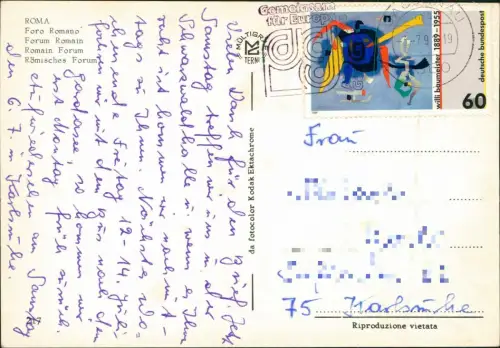 ROMA
Foro Romano
Forum Romain
Romain Forum
Römisches Forum
Vielen Dank für den Brief. Jetzt
Samstag treffen wir uns in der
Schwarzwaldhalle u. wenn es Ihnen
recht ist kommen wir nach mit-
tags zu Ihnen. Nächste Wo-
Freitag 12-14. Juli
wir mit dem Bus nach den
Gardasee, so kommen wir
erst Montag früh zurück.
Auf Wiedersehen am Samstag
den 6.7 in Karlsruhe.
da fotocolor Kodak Ektachrome
Gemeinsam
für Europa
willi baumeister 1889-1955
deutsche bundespost
60
Frau
75 Karlsruhe
Riproduzione vietata